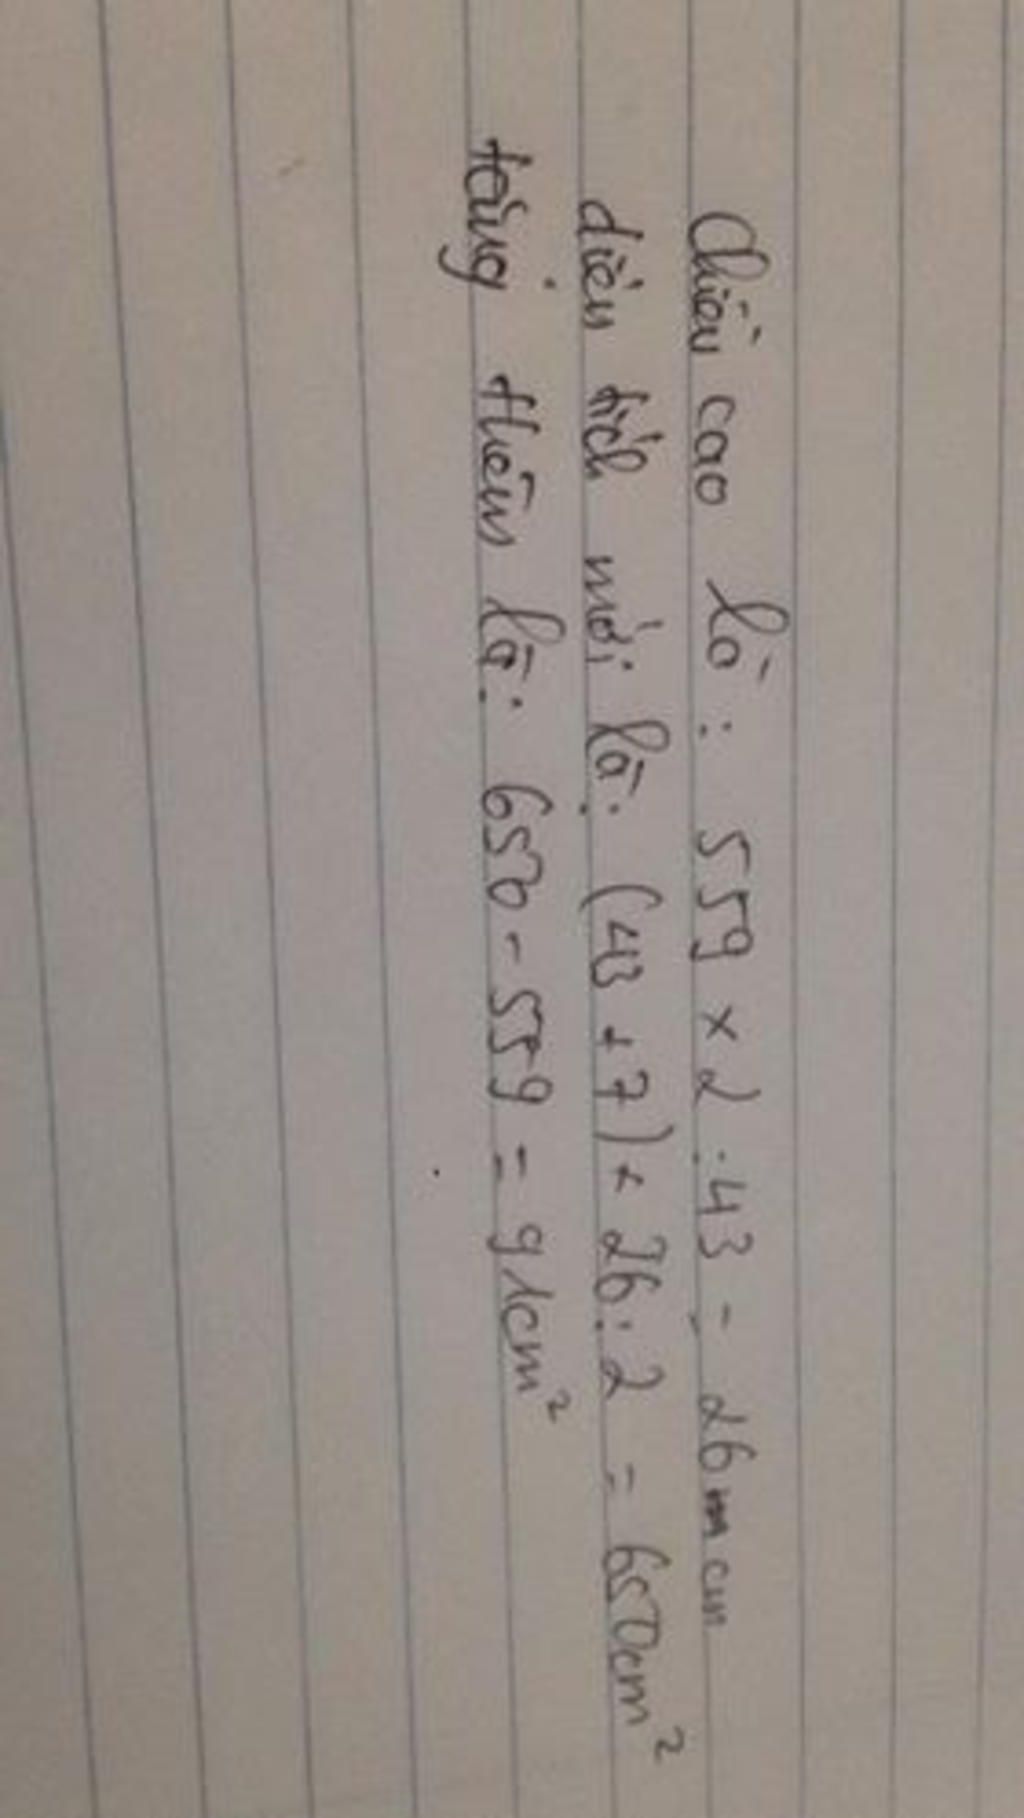 Chiều cao là: 559 x 2 : 43 = 26 m cm
diện tích mới là: (43 + 7) x 26 : 2 = 650cm²
tăng thêm là: 650 - 559 = 91cm²